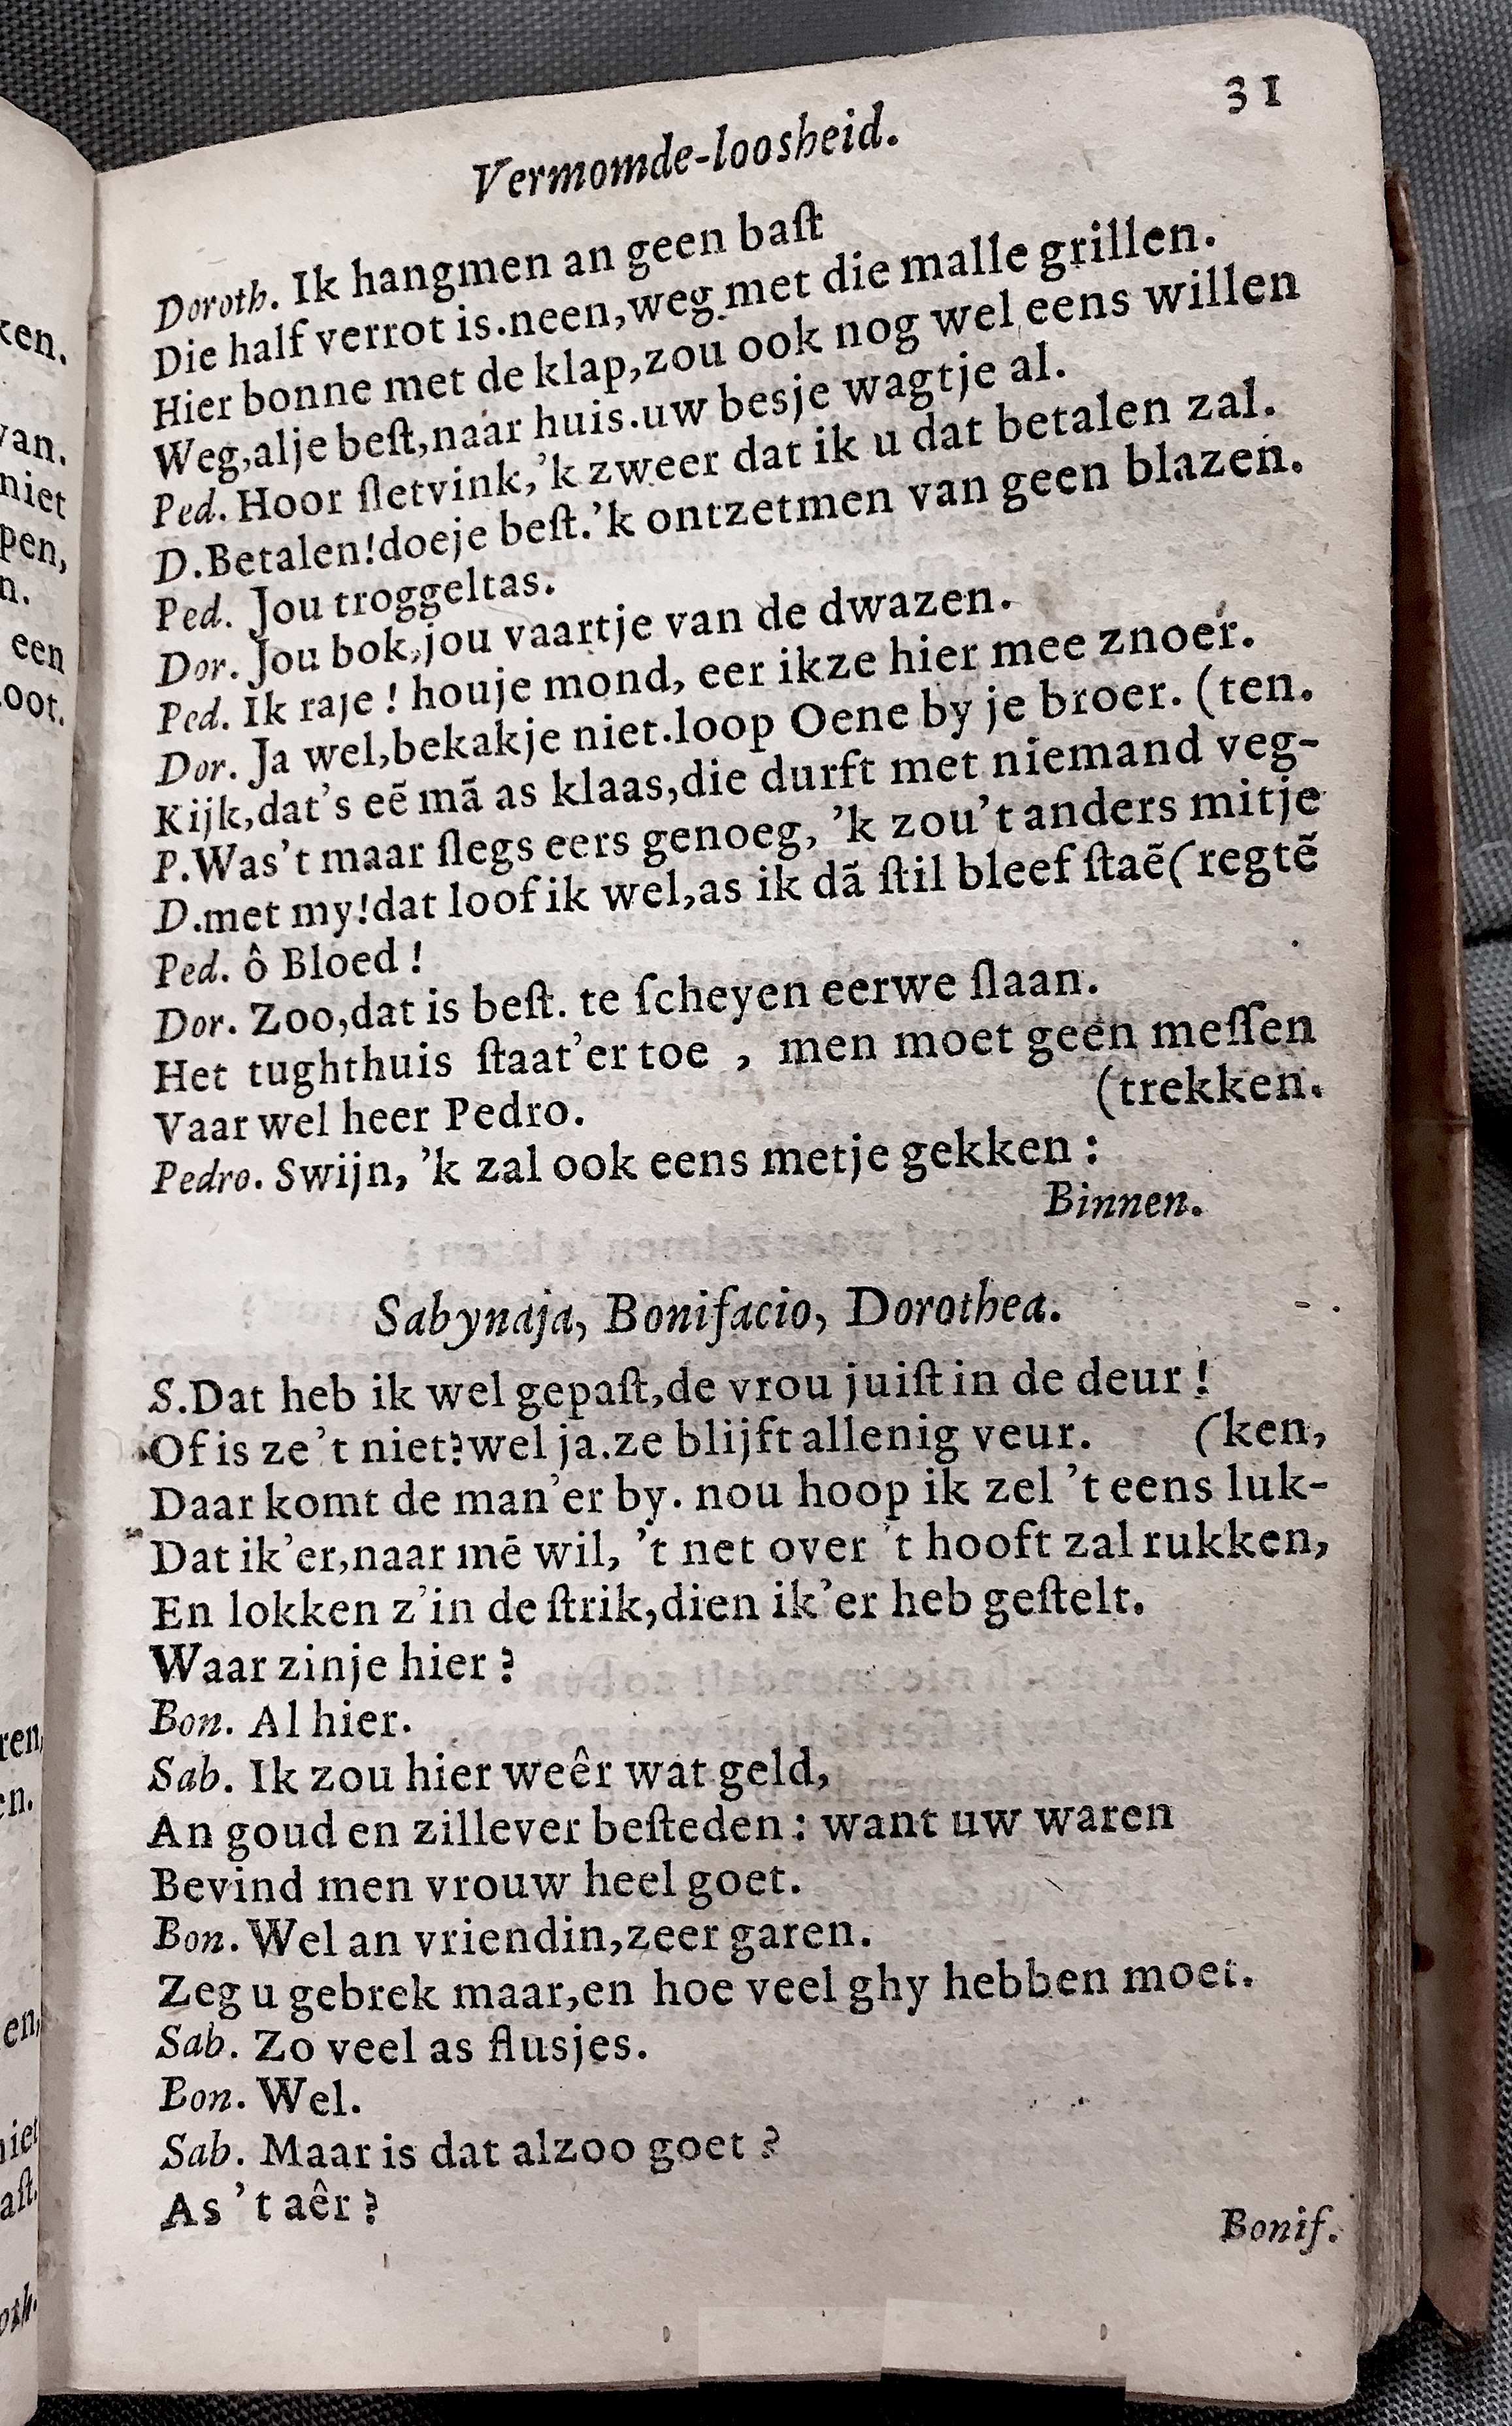 31
Vermomde-loosheid.
Doroth. Ik hangmen an geen baſt
Die half verrot is.neen,weg met die malle grillen.
Hier bonne met de klap,zou ook nog wel eens willen
Weg,alje beſt,naar huis.uw besje wagtje al.
Ped. Hoor ſletvink,'k zweer dat ik u dat betalen zal.
D.Betalen!doeje beſt.'k ontzetmen van geen blazen.
Ped. Jou troggeltas.
Dor. Jou bok,jou vaartje van de dwazen.
Ped. Ik raje ! houje mond, eer ikze hier mee znoer.
Dor. Ja wel,bekakje niet.loop Oene by je broer. (ten.
Kijk,dat's eẽ mã as klaas,die durft met niemand veg-
P.Was't maar ſlegs eers genoeg, 'k zou't anders mitje
D.met my!dat loof ik wel,as ik dã ſtil bleef ſtaẽ(regtẽ
Ped. ô Bloed !
Dor. Zoo,dat is beſt. te ſcheyen eerwe ſlaan.
Het tughthuis ſtaat'er toe , men moet geen meſſen
(trekken.
Vaar wel heer Pedro.
Pedro. Swijn, 'k zal ook eens metje gekken :
Binnen.
Sabynaja, Bonifacio, Dorothea.
S.Dat heb ik wel gepaſt,de vrou juiſt in de deur !
Of is ze 't niet?wel ja.ze blijft allenig veur. (ken,
Daar komt de man'er by. nou hoop ik zel 't eens luk-
Dat ik'er,naar mē wil, 't net over 't hooft zal rukken,
En lokken z'in de ſtrik,dien ik'er heb geſtelt.
Waar zinje hier ?
Bon. Al hier.
Sab. Ik zou hier weêr wat geld,
An goud en zillever beſteden : want uw waren
Bevind men vrouw heel goet.
Bon. Wel an vriendin,zeer garen.
Zeg u gebrek maar,en hoe veel ghy hebben moet.
Sab. Zo veel as flusjes.
Bon. Wel.
Sab. Maar is dat alzoo goet ?
As 't aêr ?
Bonif.
ken.
van.
niet
pen,
n.
een
oot.
ren,
en.
en,
niet
aſt.
oth.